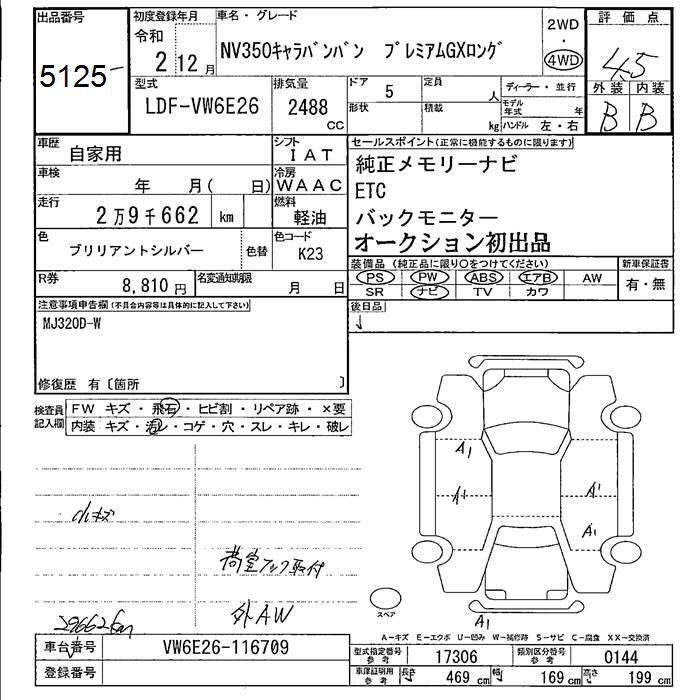 出品番号
5125
初度登録年月
令和
2 12 月
車名・グレード
NV350キャラバンバン プレミアムGXロング
2WD
・
4WD
評価点
4.5
外装 内装
B B
型式
LDF-VW6E26
排気量
2488
CC
ドア 5
定員 人
形状
積載 kg
ディーラー・並行
モデル年式 年
ハンドル 左・右
車歴
自家用
シフト
IAT
車検
年 月( 日)
冷房
WAAC
走行
2万9千662 km
燃料
軽油
色
ブリリアントシルバー
色替
色コード
K23
R券
8,810 円
名変通知期限
月 日
セールスポイント(正常に機能するものに限ります)
純正メモリーナビ
ETC
バックモニター
オークション初出品
装備品 (純正品に限り○をつけてください)
PS PW ABS エアB AW
SR ナビ TV カワ
新車保証書
有・無
後日品
注意事項申告欄(不具合内容等は具体的に記入して下さい)
MJ320D-W
修復歴 有〔箇所 〕
検査員
記入欄
FW キズ・飛石・ヒビ割・リペア跡・×要
内装 キズ・汚レ・コゲ・穴・スレ・キレ・破レ
小キズ
荷室フック取付
外AW
29662km
A1
A1
A1
A1
A1
スペア
A-キズ E-エクボ U-凹み W-補修跡 S-サビ C-腐食 XX-交換済
車台番号
VW6E26-116709
登録番号
型式指定番号
参考
17306
類別区分番号
参考
0144
車庫証明用
参考
長さ 469 cm 幅 169 cm 高さ 199 cm